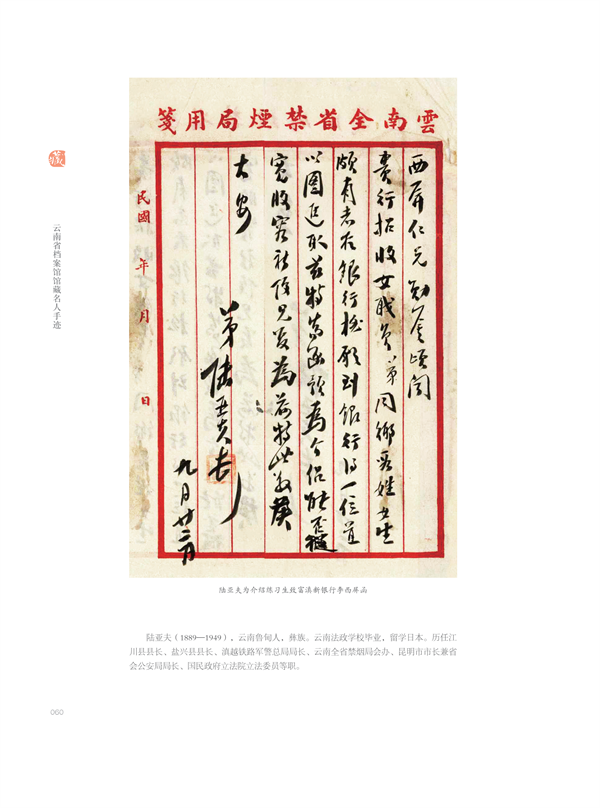 雲南全省禁煙局用箋
西屏仁兄勛鑒頃聞
貴行招收女職員弟同鄉姓女生
頗有志在銀行願到銀行得一位置
以圖進取茲特函請為介紹能否
寬收容祈見覆為荷特此
大安
弟陸亞夫
九月廿二日
民國 年 月 日
藏
云南省档案馆馆藏名人手迹
陆亚夫为介绍练习生致富滇新银行李西屏函
陆亚夫（1889—1949），云南鲁甸人，彝族。云南法政学校毕业，留学日本。历任江
川县县长、盐兴县县长、滇越铁路军警总局局长、云南全省禁烟局会办、昆明市市长兼省
会公安局局长、国民政府立法院立法委员等职。
060